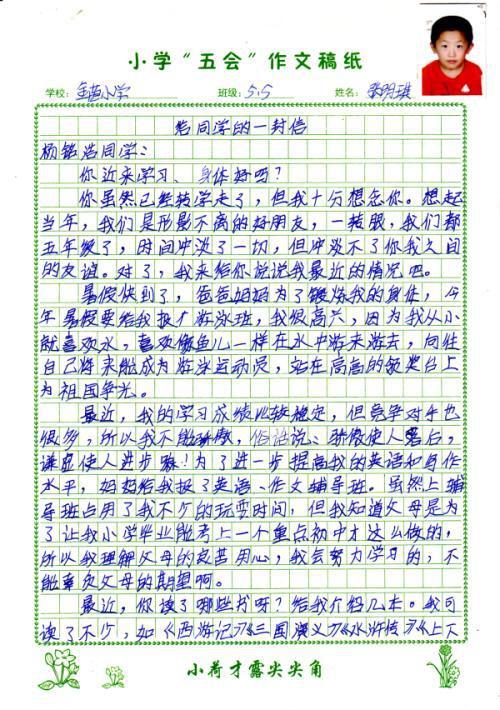 小学“五会”作文稿纸
学校：金苗小学 班级：5.5 姓名：张明琪
给同学的一封信
杨铭浩同学：
你近来学习、身体好吗？
你虽然已经转学走了，但我十分想念你。想起
当年，我们是形影不离的好朋友，一转眼，我们都
五年级了，时间冲淡了一切，但冲淡不了你我之间
的友谊。对了，我来给你说说我最近的情况吧。
暑假快到了，爸爸妈妈为了锻炼我的身体，今
年暑假要给我报个游泳班，我很高兴，因为我从小
就喜欢水，喜欢像鱼儿一样在水中游来游去，向往
自己将来能成为游泳运动员，站在高高的领奖台上
为祖国争光。
最近，我的学习成绩比较稳定，但竞争对手也
很多，所以我不能骄傲，俗话说：骄傲使人落后，
谦虚使人进步嘛！为了进一步提高我的英语和写作
水平，妈妈给我报了英语、作文辅导班。虽然上辅
导班占用了我不少的玩耍时间，但我知道父母是为
了让我小学毕业能考上一个重点初中才这么做的，
所以我理解父母的良苦用心，我会努力学习的，不
能辜负父母的期望啊。
最近，你读了哪些书呀？给我介绍几本。我可
读了不少，如《西游记》《三国演义》《水浒传》《上下
小荷才露尖尖角